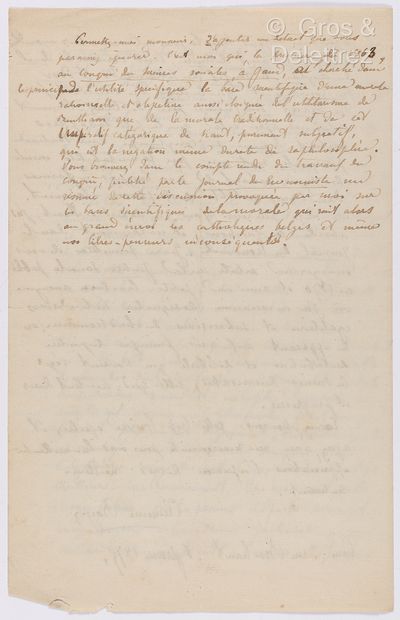 © Gros &
Delettrez
Permettez-moi, monsieur, d'ajouter un détail que vous
paraissez ignorer. C'est moi qui, le premier, dès 1863,
au congrès des sciences sociales à Gand, ai cherché dans
le principe de l'utilité spécifique la base scientifique d'une morale
rationnelle et objective aussi éloignée de l'utilitarisme de
Bentham que de la morale traditionnelle et de cet
impératif catégorique de Kant, purement subjectif,
qui est la négation même du reste de sa philosophie.
Vous trouverez dans le compte rendu des travaux du
congrès, publié par le Journal des Economistes un
résumé de cette discussion provoquée par moi sur
les bases scientifiques de la morale qui mit alors
en grand émoi les catholiques belges et même
nos libres-penseurs inconséquents.